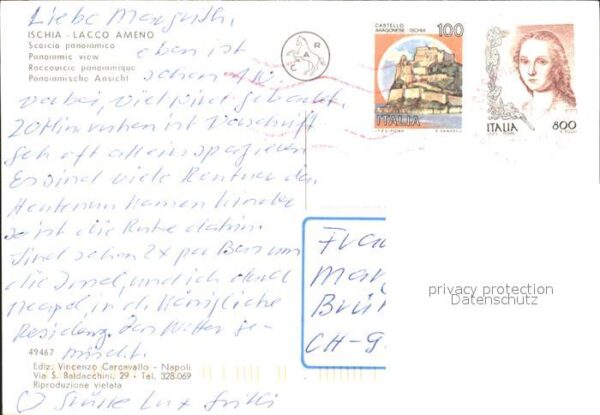 Liebe Margrith,
ISCHIA - LACCO AMENO
Scorcio panoramico
Panoramic view
Raccourcie panoramique
Panoramische Ansicht
eben ist
schon
vorbei, viel
20 Min ruhen ist Vorschrift
Geh oft allein spazieren
Es sind viele Rentner da
Heute kamen Kinder
so ist die Ruhe dahin.
Sind schon 2x per Bus um
die Insel, und ich durch
Neapel, in d. Königliche
Residenz. Das Wetter ge-
mischt.
49467
Ediz. Vincenzo Carcavallo - Napoli
Via S. Baldacchini, 29 - Tel. 328.069
Riproduzione vietata
CASTELLO
ARAGONESE - ISCHIA
100
ITALIA
ITALIA
800
Frau
CH-9
privacy protection
Datenschutz